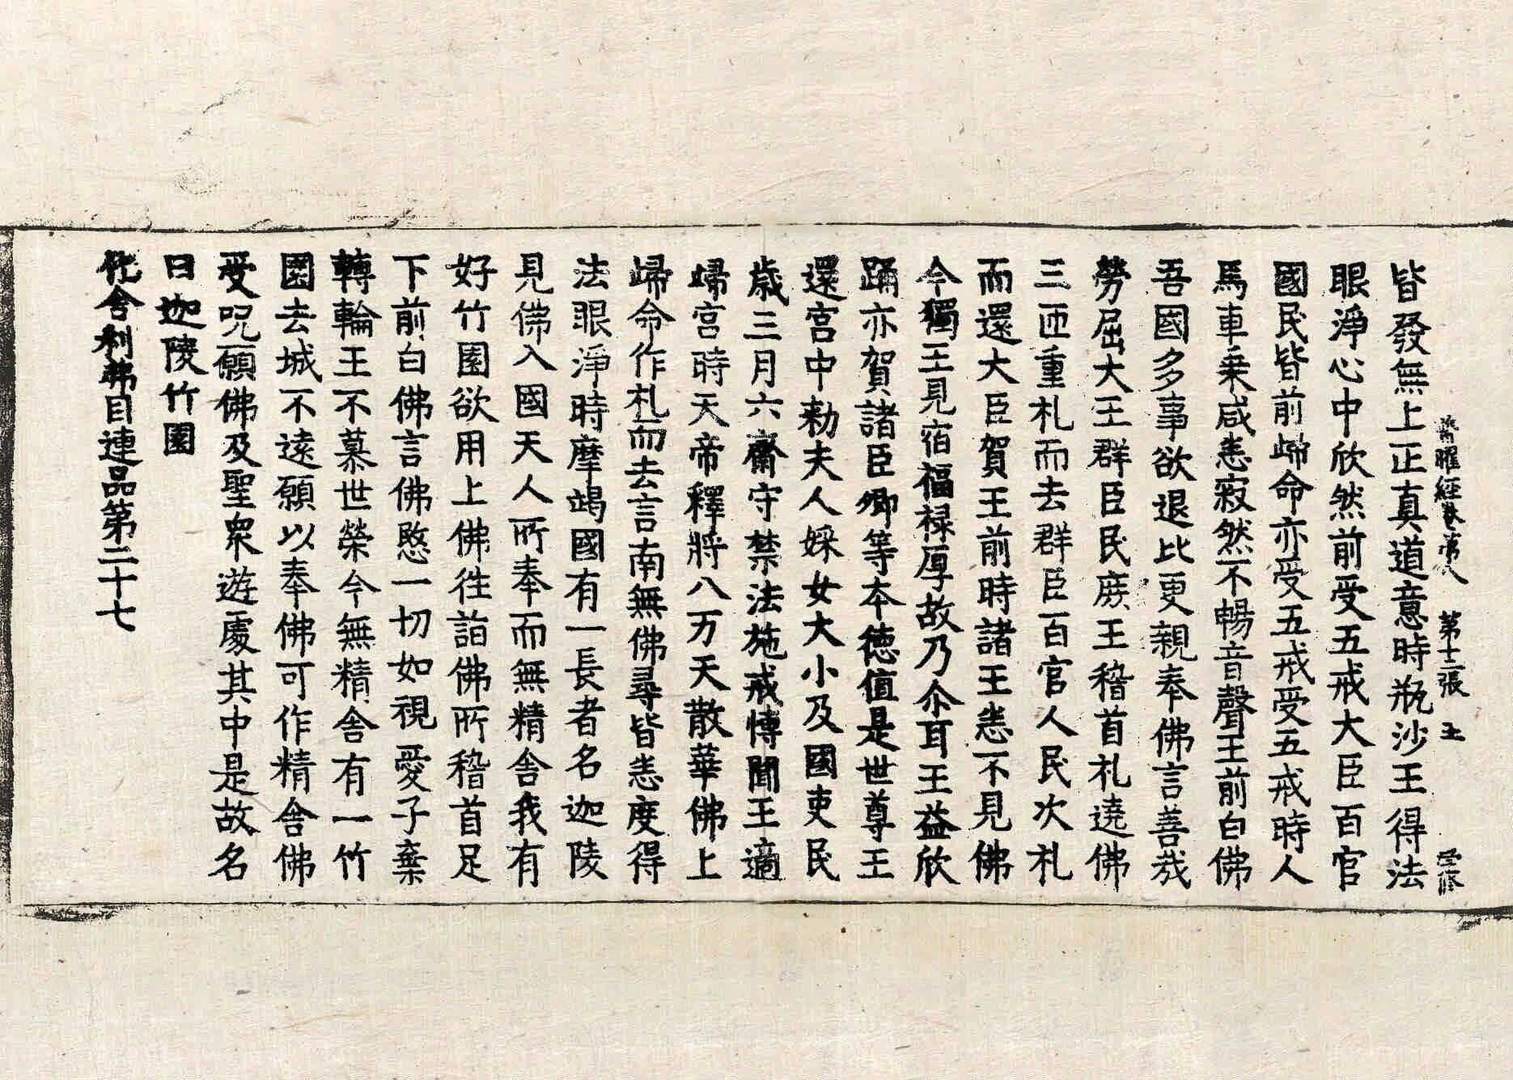 普曜經卷第八 第十二張 王
皆發無上正真道意時瓶沙王得法
眼淨心中欣然前受五戒大臣百官
國民皆前歸命亦受五戒受五戒時人
馬車乗咸恚寂然不暢音聲王前白佛
吾國多事欲退比更親奉佛言善哉
勞屈大王群臣民庶王稽首礼遶佛
三匝重札而去群臣百官人民次札
而還大臣賀王前時諸王恚不見佛
今獨王見宿福禄厚故乃尒耳王益欣
踊亦賀諸臣卿等夲德值是世尊王
還宮中勑夫人婇女大小及國吏民
歳三月六齋守禁法施戒慱聞王適
歸宮時天帝釋將八万天散華佛上
歸命作札而去言南無佛尋皆恚度得
法眼淨時摩竭國有一長者名迦陵
見佛入國天人所奉而無精舍我有
好竹園欲用上佛徃詣佛所稽首足
下前白佛言佛愍一切如視愛子棄
轉輪王不慕世榮今無精舍有一竹
園去城不遠願以奉佛可作精舍佛
受呪願佛及聖衆遊處其中是故名
曰迦陵竹園
化舍利弗目連品第二十七